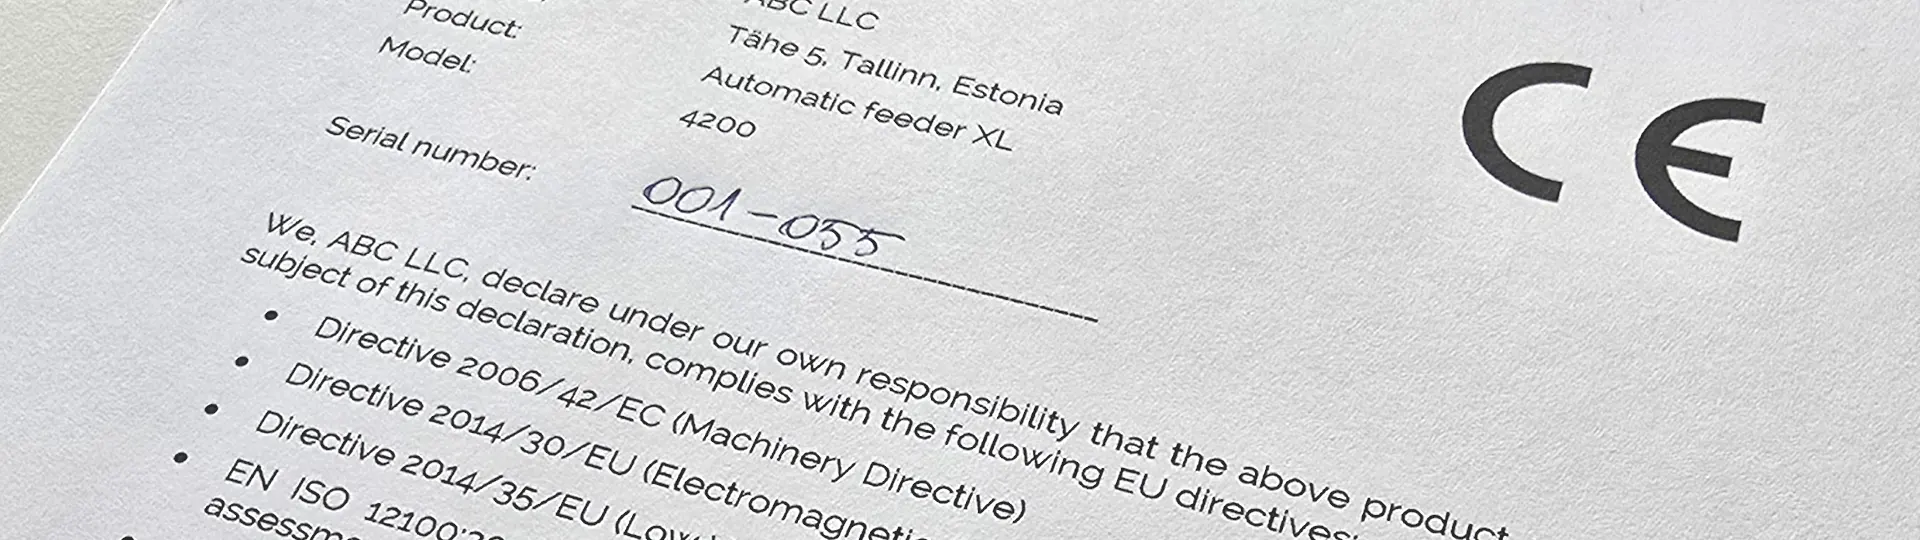 ABC LLC
Tähe 5, Tallinn, Estonia
Product: Automatic feeder XL
Model: 4200
Serial number: 001-055
CE
We, ABC LLC, declare under our own responsibility that the above product
subject of this declaration, complies with the following EU directives:
• Directive 2006/42/EC (Machinery Directive)
• Directive 2014/30/EU (Electromagnetic
• Directive 2014/35/EU (Low
• EN ISO 12100:20